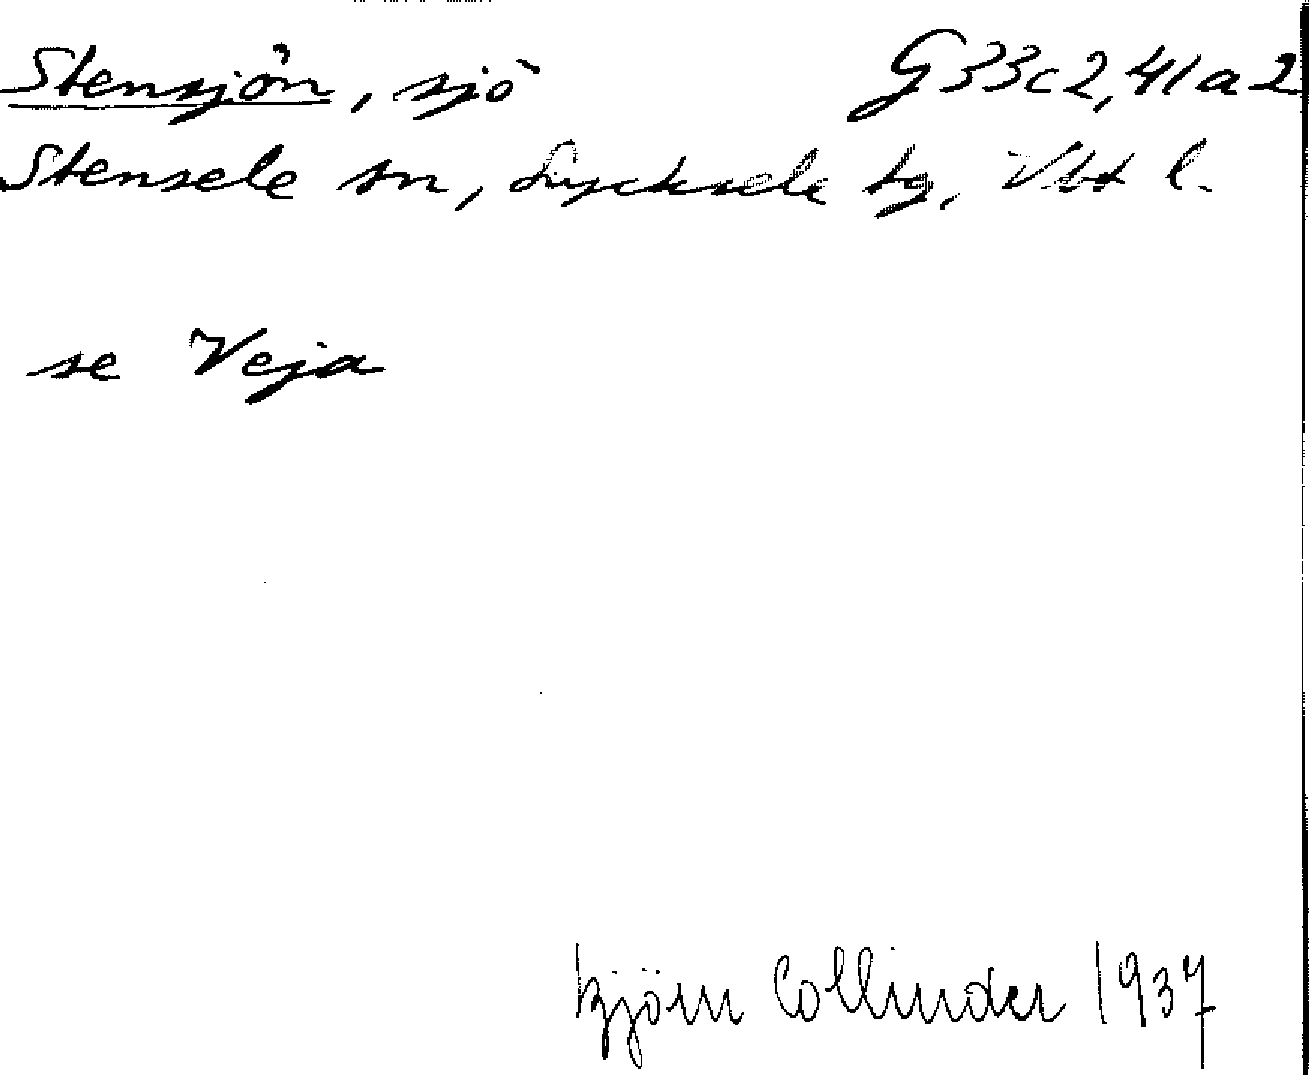 Stensjön, sjö G33c2,41a2
Stensele sn, Lycksele tg, Vbt l.
se Veja
Björn Collinder 1937